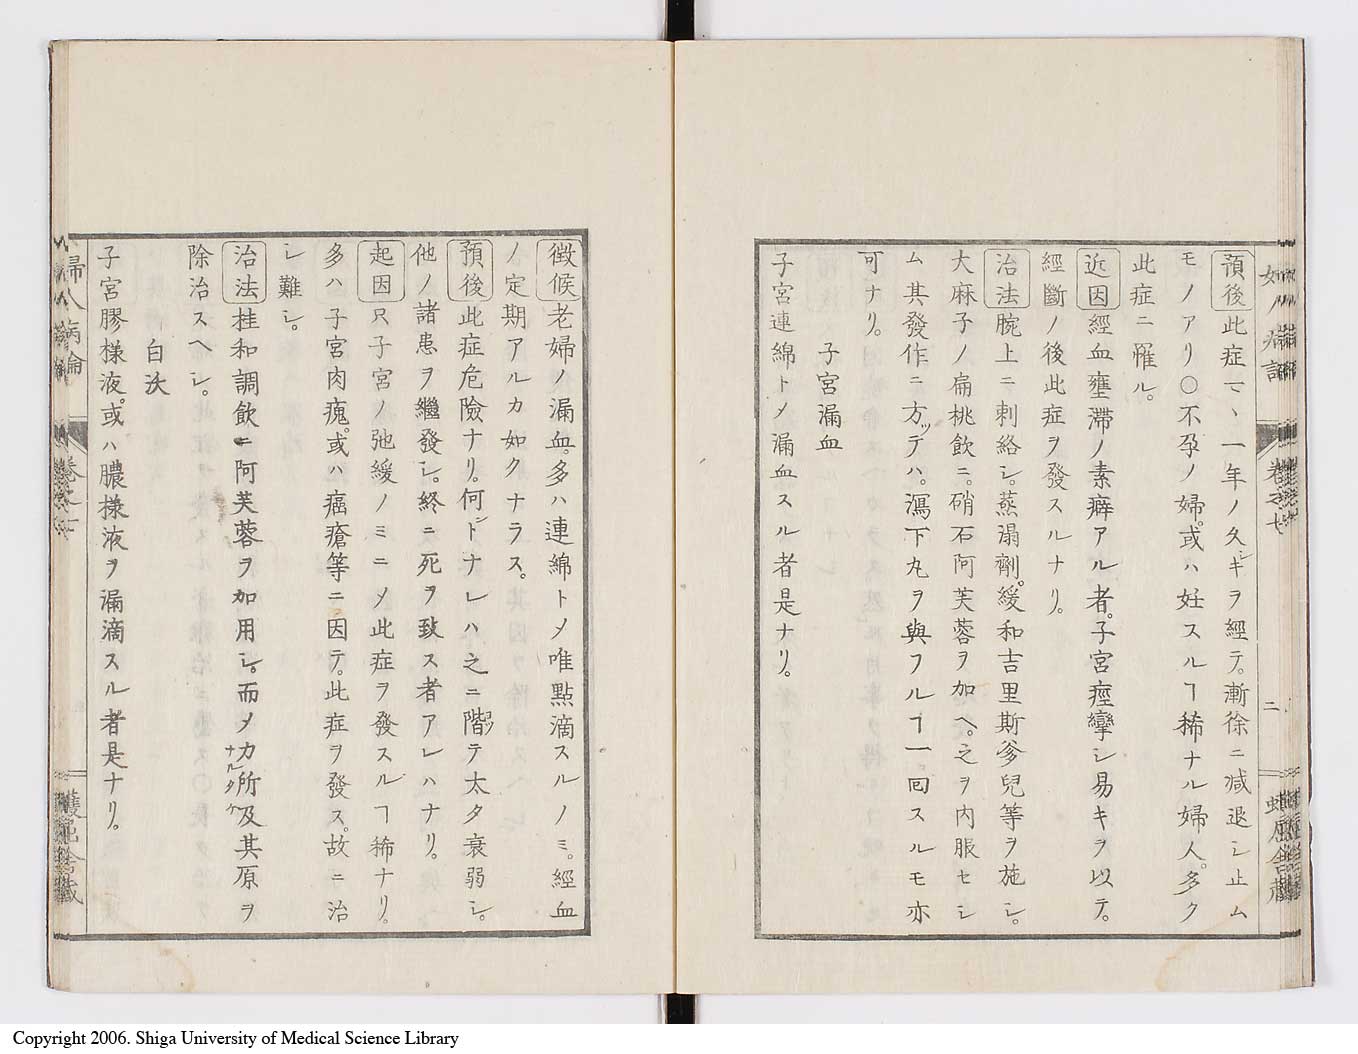 預後此症一、一年ノ久シキヲ經テ。漸徐ニ减退シ止ム
モノアリ〇不孕ノ婦。或ハ妊スルヿ稀ナル婦人。多ク
此症ニ罹ル。
近因經血壅滯ノ素癖アル者。子宮痙攣シ易キヲ以テ。
經斷ノ後此症ヲ發スルナリ。
治法腕上ニ刺絡シ。蒸溻劑。緩和吉里斯爹兒等ヲ施シ。
大麻子ノ扁桃飲ニ。硝石阿芙蓉ヲ加ヘ。之ヲ内服セシ
ム其發作ニ方ッテハ。瀉下丸ヲ與フルヿ一。回スルモ亦
可ナリ。
子宮漏血
子宮連綿トメ漏血スル者是ナリ。
徴候老婦ノ漏血。多ハ連綿トメ唯點滴スルノミ。經血
ノ定期アルカ如クナラス。
預後此症危險ナリ。何トナレハ之ニ階テ太タ衰弱シ。
他ノ諸患ヲ繼發シ。終ニ死ヲ致ス者アレハナリ。
起因只子宮ノ弛緩ノミニメ此症ヲ發スルヿ稀ナリ。
多ハ子宮肉瘣。或ハ癌瘡等ニ因テ。此症ヲ發ス。故ニ治
シ難シ。
治法桂和調飲ニ阿芙蓉ヲ加用シ。而メ力所及其原ヲ
ナルタケ
除治スヘシ。
白沃
子宮膠様液。或ハ膿様液ヲ漏滴スル者是ナリ。
婦人病論
卷之七
蠖龜舎藏
二
Copyright 2006. Shiga University of Medical Science Library